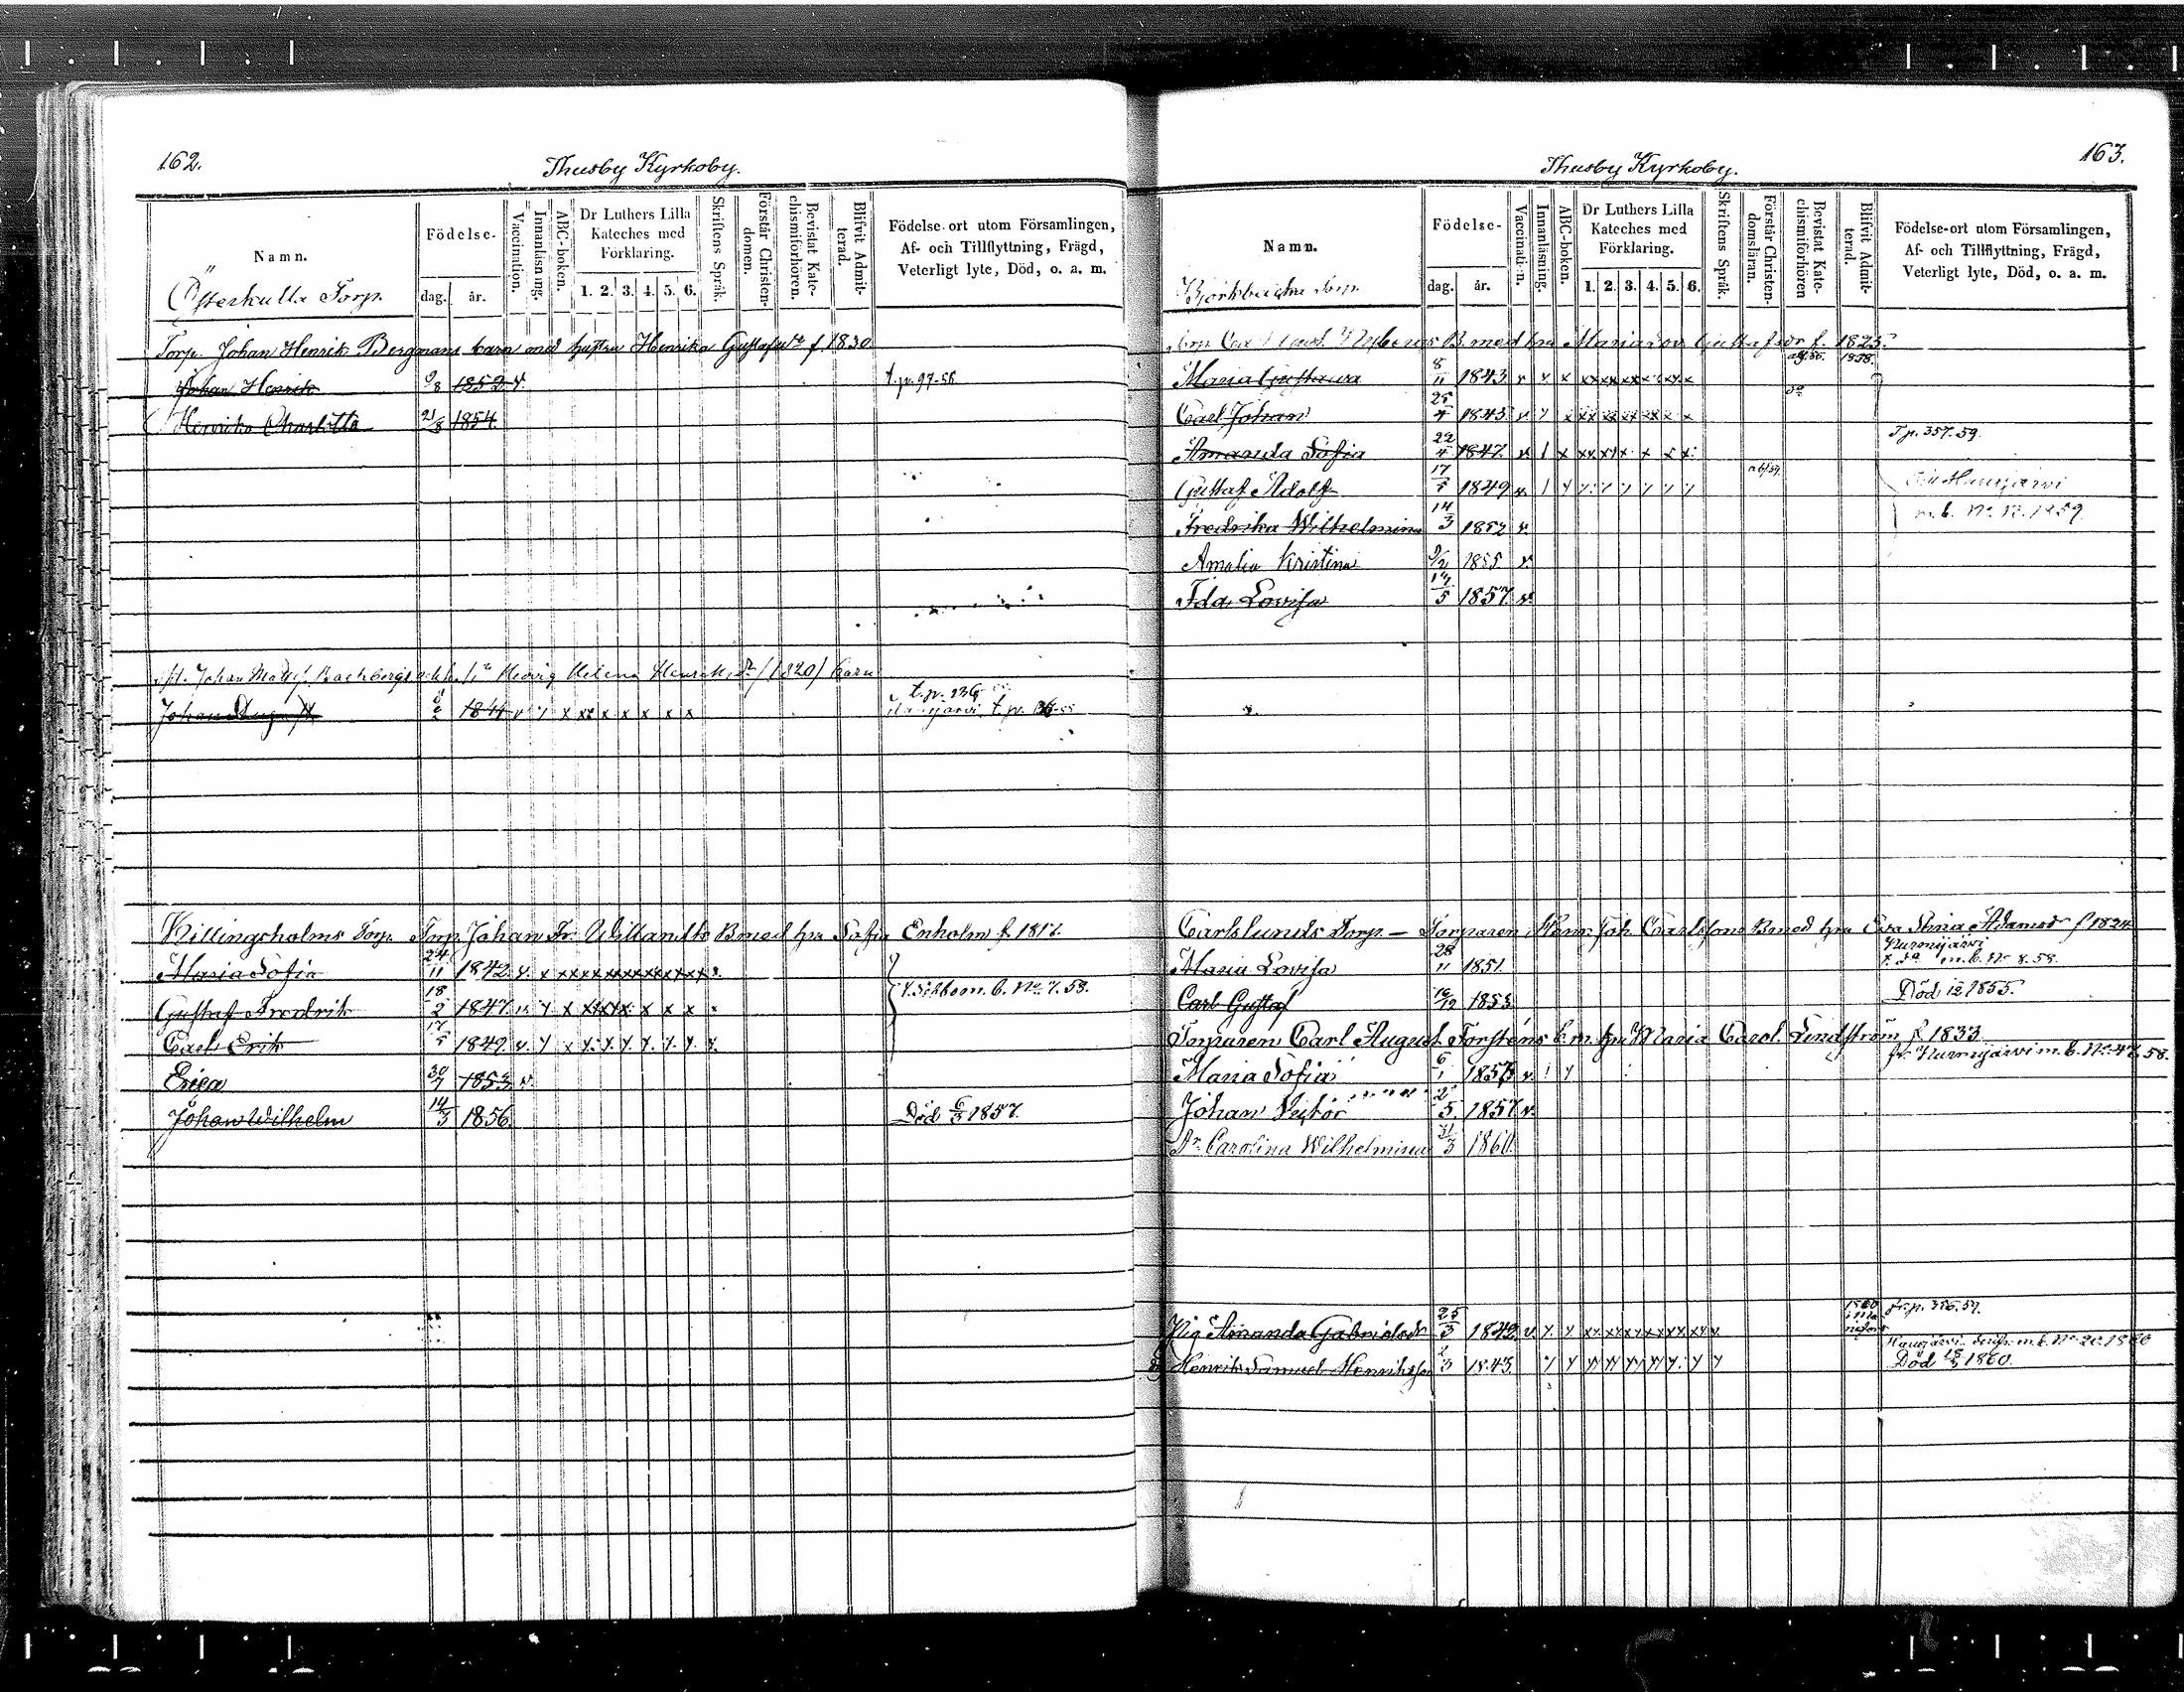 162.
Thusby Kyrkoby.
Namn.
Födelse-
dag.
år.
Vaccination.
Innanläsning.
ABC-boken.
Dr Luthers Lilla
Kateches med
Förklaring.
1. 2. 3. 4. 5. 6.
Skriftens Språk.
Förstår Christen-
domen.
Bevistat Kate-
chismiförhören.
Blifvit Admit-
terad.
Födelse-ort utom Församlingen,
Af- och Tillflyttning, Frägd,
Veterligt lyte, Död, o. a. m.
Österkulla Torp.
Torp. Johan Henrik Bergmans barn med hustru Henrika Gustafsdr f. 1830
Johan Henrik 9/8 1852 v. t. p. 97-56
Henrika Charlotta 21/8 1854
Johan Hedvig Helena 1820 barn
Johan 1844 v y x xx x x x x x t. p. 236
Killingsholms Torp. Torp. Johan Fr. Willandts B med hu Sofia Enholm f. 1817.
Maria Sofia 24/11 1842 v. x x x x x x x x x x x x x
Gustaf Fredrik 18/2 1847 v. y x x x x x x x x t. Sibbo m. b. No. 7. 59.
Carl Erik 17/5 1849 v. y x y. y. y. y. y. y. y.
Erica 30/7 1853 v.
Johan Wilhelm 14/3 1856. Död 6/3 1857.
163.
Thusby Kyrkoby.
Namn.
Födelse-
dag.
år.
Vaccination.
Innanläsning.
ABC-boken.
Dr Luthers Lilla
Kateches med
Förklaring.
1. 2. 3. 4. 5. 6.
Skriftens Språk.
Förstår Christen-
domsläran.
Bevistat Kate-
chismiförhören
Blifvit Admit-
terad.
Födelse-ort utom Församlingen,
Af- och Tillflyttning, Frägd,
Veterligt lyte, Död, o. a. m.
Torp.
B. med hu Maria Lov. Gustafsdr f. 1825
Maria Gustava 8/11 1843 v y x xx xx xx x x x x 1858.
Carl Johan 25/4 1845 v y x xx xx xx xx x x
Amanda Sofia 22/4 1847. v. / x xx x x x x x T. p. 357. 59.
Gustaf Adolf 17/5 1849 v. / y y y y y y y
Fredrika Wilhelmina 14/3 1852 v. m. b. No 12. 1859.
Amalia Kristina 9/2 1855 v.
Ida Lovisa 17/5 1857. v.
Carlslunds Torp. — Torparen Henr. Joh. Carlssons B med hu Eva Stina Adamsdr f 1824
Maria Lovisa 28/11 1851. Nurmijärvi m. b. No 8. 58.
Carl Gustaf 16/12 1853 Död 1855.
Torparen Carl August Forsténs b. m. hu Maria Carol. Lindström f. 1833
Maria Sofia 6/1 1855 v. / y fr. Nurmijärvi m. b. No. 47. 58.
Johan Victor 2/5 1857. v.
Dr Carolina Wilhelmina 31/3 1860.
Pig. Amanda Gabrielsdr 25/3 1842 v. y. y xx xx xx xx xx xx v. 1860 fr. p. 356. 59.
m. b. No 20. 1860
Henrik Samuel Henriksson 2/3 1843. y y yy yy yy yy y. y y Död 18/5 1860.